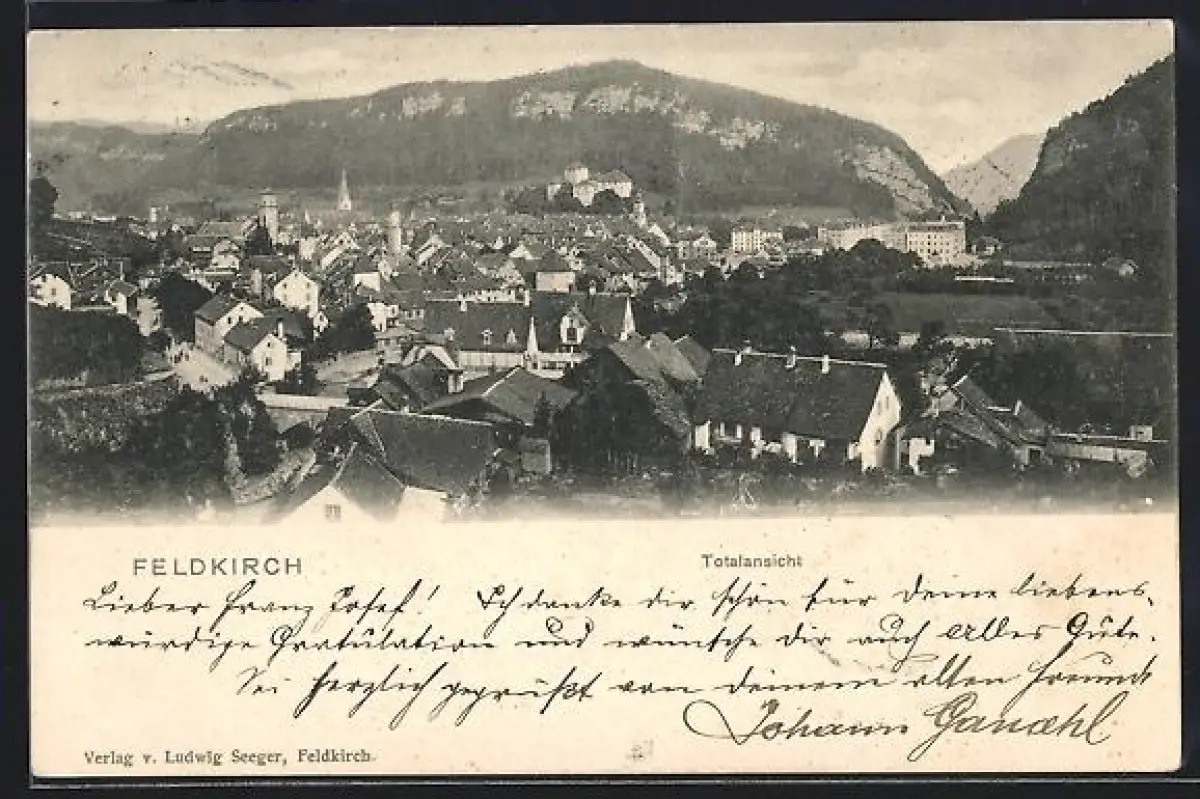 FELDKIRCH
Totalansicht
Lieber Franz Josef! Ich danke dir schön für deine liebens-
würdige Gratulation und wünsche dir auch alles Gute.
Sei herzlich gegrüßt von deinem alten Freund
Johann Ganahl
Verlag v. Ludwig Seeger, Feldkirch.